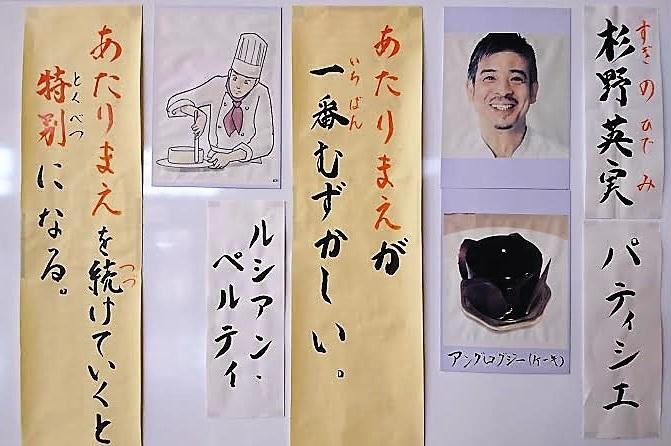 すぎのひでみ
杉野英実
パティシエ
アングログジー(ケーキ)
あたりまえが
いちばん
一番むずかしい。
ルシアン・
ペルティ
あたりまえを続けていくと
つづ
とくべつ
特別になる。